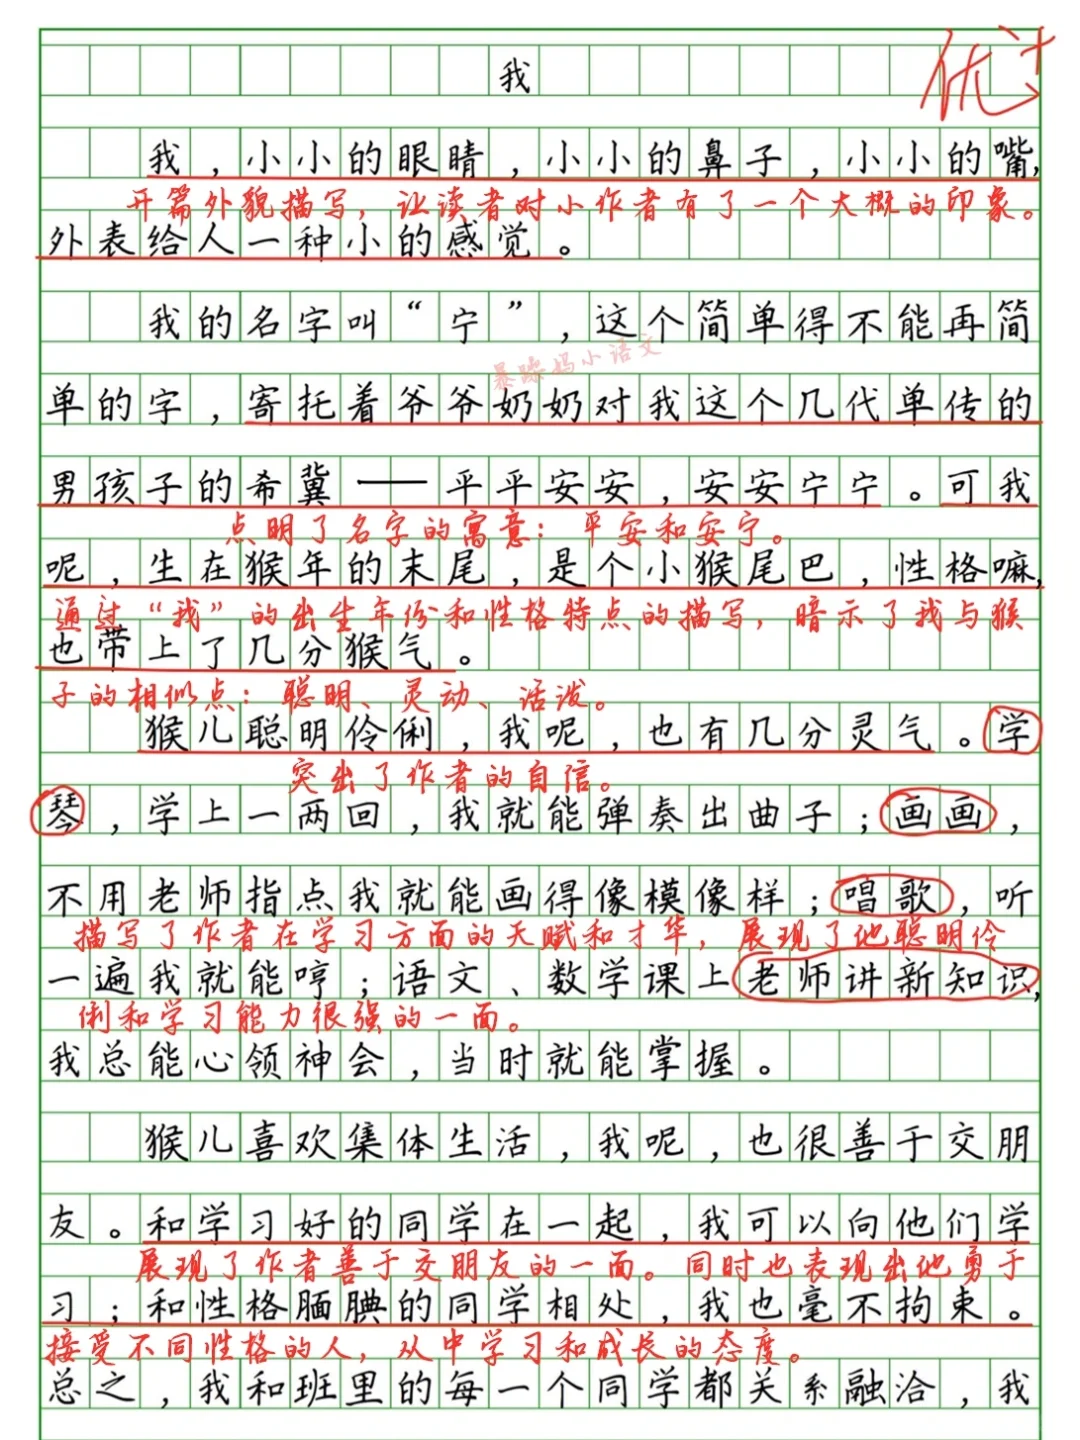 我
优+
我，小小的眼睛，小小的鼻子，小小的嘴，
开篇外貌描写，让读者对小作者有了一个大概的印象。
外表给人一种小的感觉。
我的名字叫“宁”，这个简单得不能再简
暴躁妈小语文
单的字，寄托着爷爷奶奶对我这个几代单传的
男孩子的希冀——平平安安，安安宁宁。可我
点明了名字的寓意：平安和安宁。
呢，生在猴年的末尾，是个小猴尾巴，性格嘛，
通过“我”的出生年份和性格特点的描写，暗示了我与猴
也带上了几分猴气。
子的相似点：聪明、灵动、活泼。
猴儿聪明伶俐，我呢，也有几分灵气。学
突出了作者的自信。
琴，学上一两回，我就能弹奏出曲子；画画，
不用老师指点我就能画得像模像样；唱歌，听
描写了作者在学习方面的天赋和才华，展现了他聪明伶
一遍我就能哼；语文、数学课上老师讲新知识，
俐和学习能力很强的一面。
我总能心领神会，当时就能掌握。
猴儿喜欢集体生活，我呢，也很善于交朋
友。和学习好的同学在一起，我可以向他们学
展现了作者善于交朋友的一面。同时也表现出他勇于
习；和性格腼腆的同学相处，我也毫不拘束。
接受不同性格的人，从中学习和成长的态度。
总之，我和班里的每一个同学都关系融洽，我